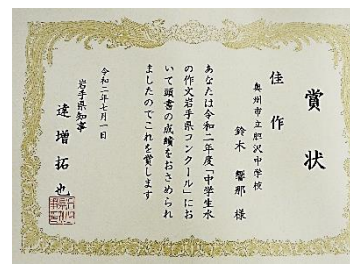 賞状
佳作
奥州市立胆沢中学校
鈴木響那様
あなたは令和二年度「中学生水
の作文岩手県コンクール」にお
いて頭書の成績をおさめられ
ましたのでこれを賞します
令和二年七月一日
岩手県知事
達増拓也